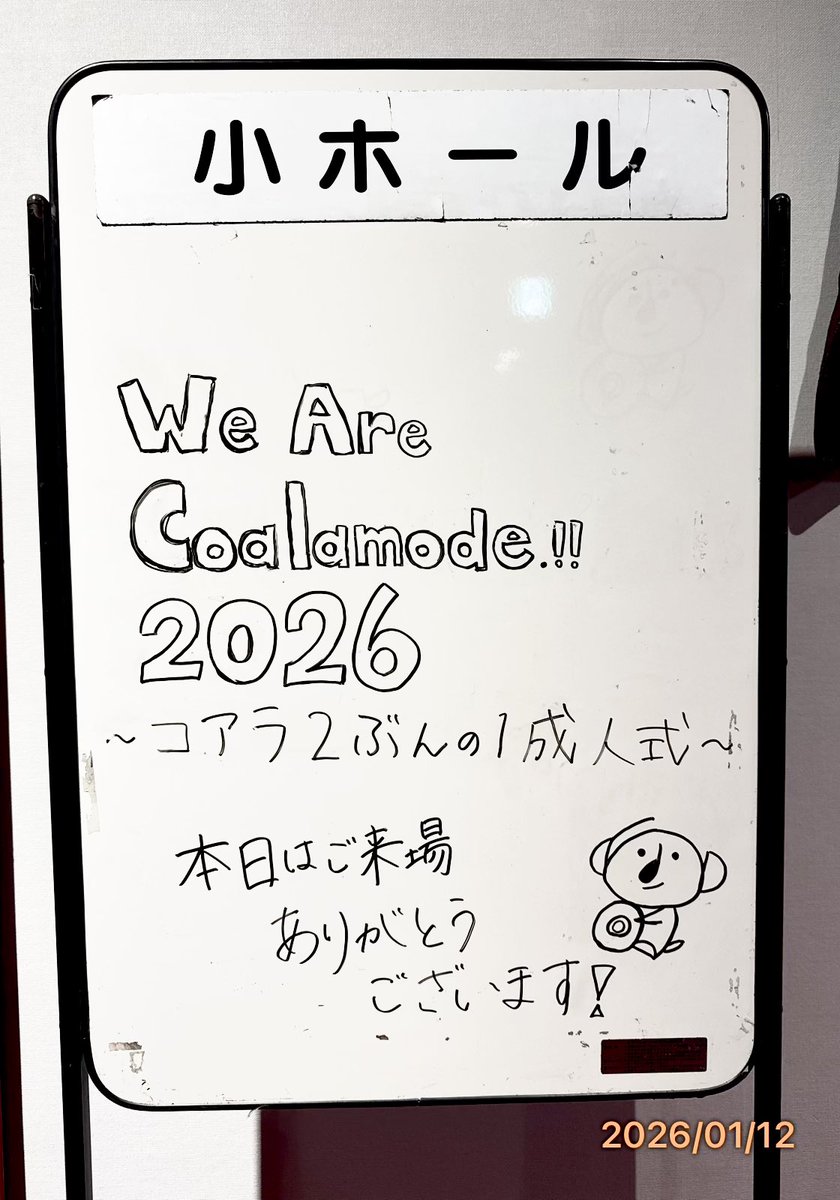 小ホール
We Are
Coalamode.!!
2026
～コアラ2ぶんの1成人式～
本日はご来場
ありがとう
ございます!
2026/01/12